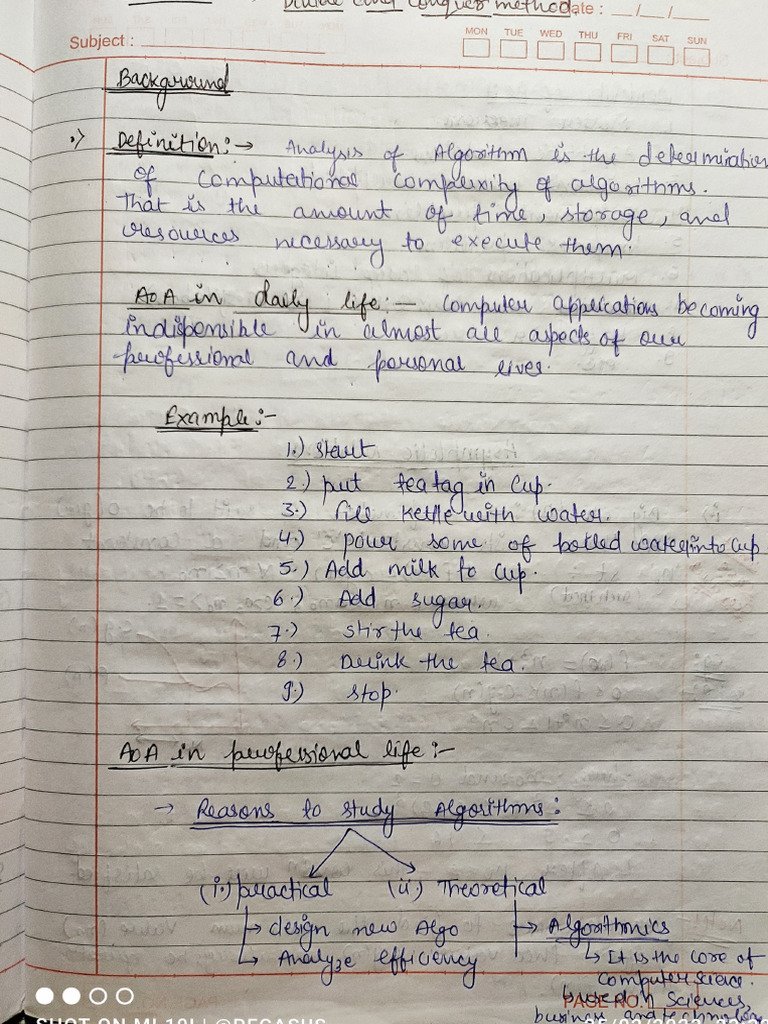 Divide and Conquer method Date : __/__/__
Subject :
MON TUE WED THU FRI SAT SUN
Background
Definition:→ Analysis of Algorithm is the determination
of computational complexity of algorithms.
That is the amount of time, storage, and
resources necessary to execute them.
AOA in daily life:— computer applications becoming
indispensible in almost all aspects of our
professional and personal lives.
Example:-
1.) start
2.) put tea tag in Cup.
3.) fill kettle with water.
4.) pour some of boiled water into Cup
5.) Add milk to Cup.
6.) Add sugar.
7.) stir the tea.
8.) Drink the tea.
9.) stop.
AOA in professional life:-
→ Reasons to study Algorithms:
(i.) practical (ii.) Theoretical
→ design new Algo → Algorithmics
→ Analyze efficiency → It is the core of
computer science.
used in sciences,
PAGE NO.
business and technology
SHOT ON MI 10I | @PEGASUS